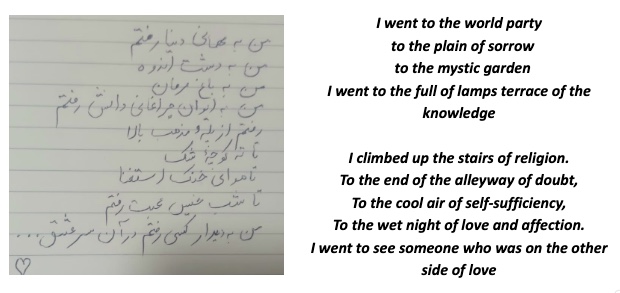 من به مهمانی دنیا رفتم
من به دشت اندوه
من به باغ عرفان
من به ایوان چراغانی دانش رفتم
رفتم از پله مذهب بالا
تا ته کوچه شک
تا هوای خنک استغنا
تا شب خیس محبت رفتم
من به دیدار کسی رفتم در آن سر عشق...
I went to the world party
to the plain of sorrow
to the mystic garden
I went to the full of lamps terrace of the
knowledge
I climbed up the stairs of religion.
To the end of the alleyway of doubt,
To the cool air of self-sufficiency,
To the wet night of love and affection.
I went to see someone who was on the other
side of love